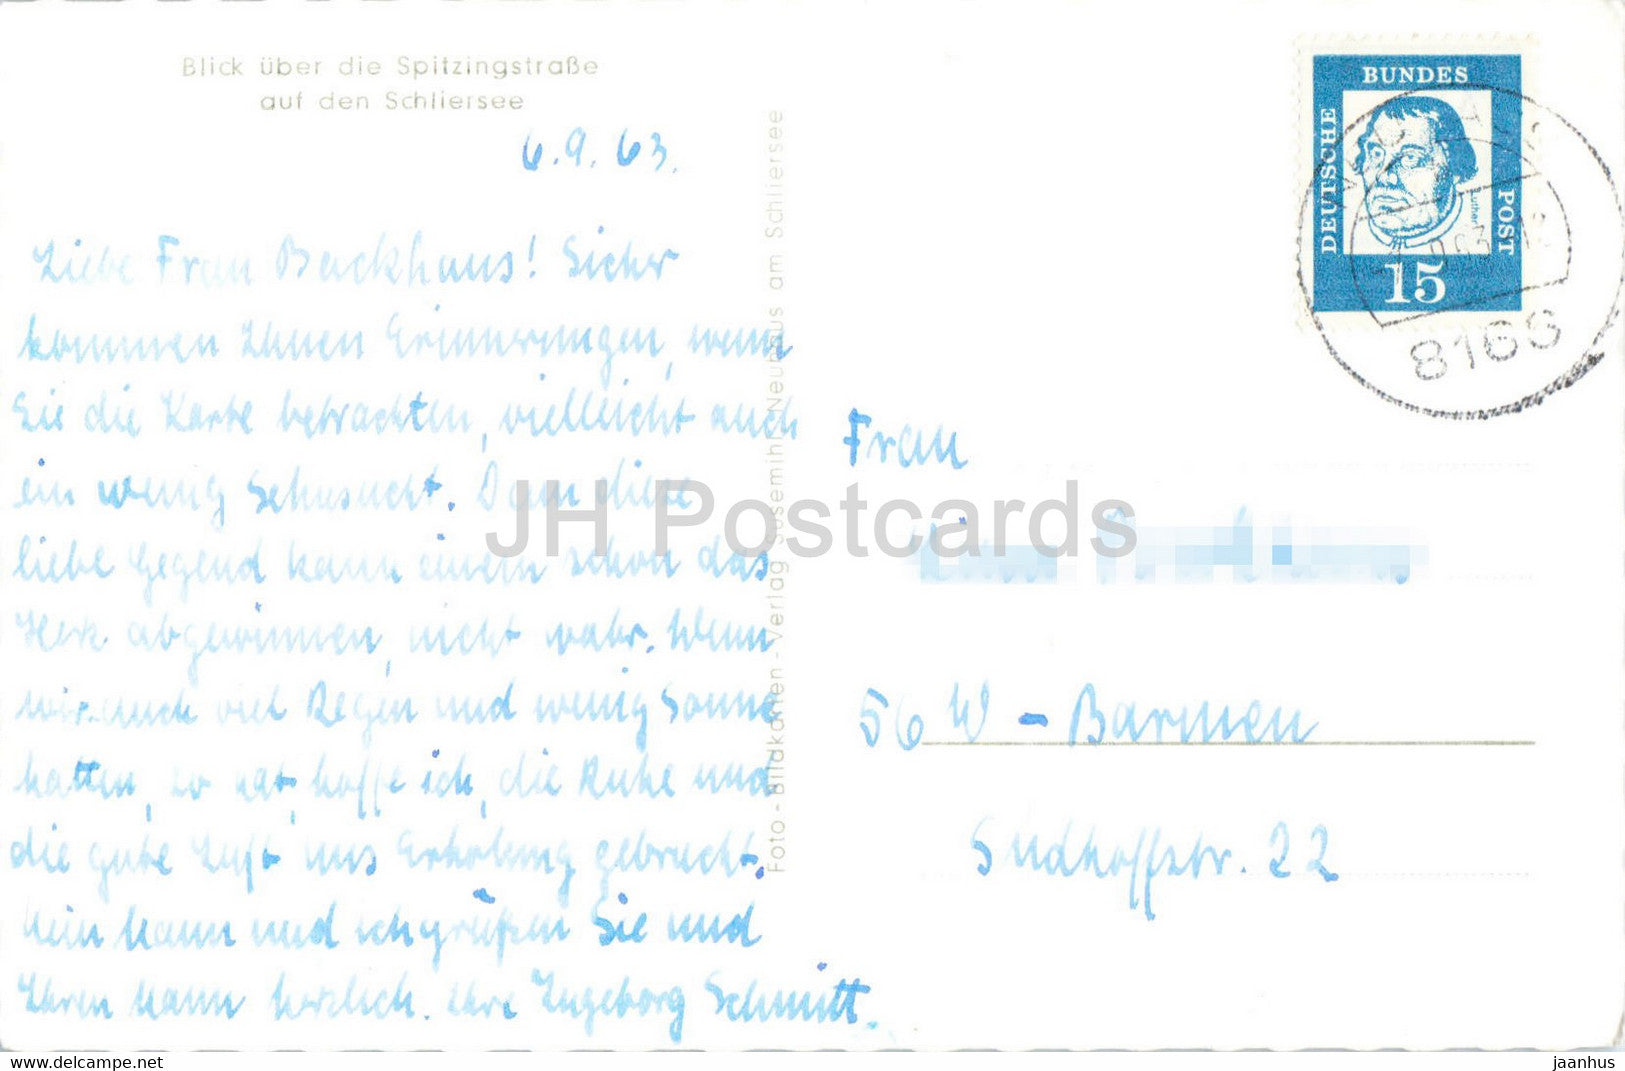 Blick über die Spitzingstraße
auf den Schliersee
6.9.63.
Liebe Frau Backhaus! Sicher
kommen Ihnen Erinnerungen, wenn
Sie die Karte betrachten, vielleicht auch
ein wenig Sehnsucht. Denn diese
liebe Gegend kann einem schon das
Herz abgewinnen, nicht wahr. Wenn
wir auch viel Regen und wenig Sonne
hatten, so hat, hoffe ich, die Ruhe und
die gute Luft uns Erholung gebracht.
Mein Mann und ich grüßen Sie und
Ihren Mann herzlich. Ihre Ingeborg Schmitt.
Foto-Bildkarten-Verlag Neuhaus am Schliersee
DEUTSCHE BUNDES POST
Luther
15
8166
Frau
56 W - Barmen
Südhoffstr. 22
JH Postcards
www.delcampe.net
jaanhus